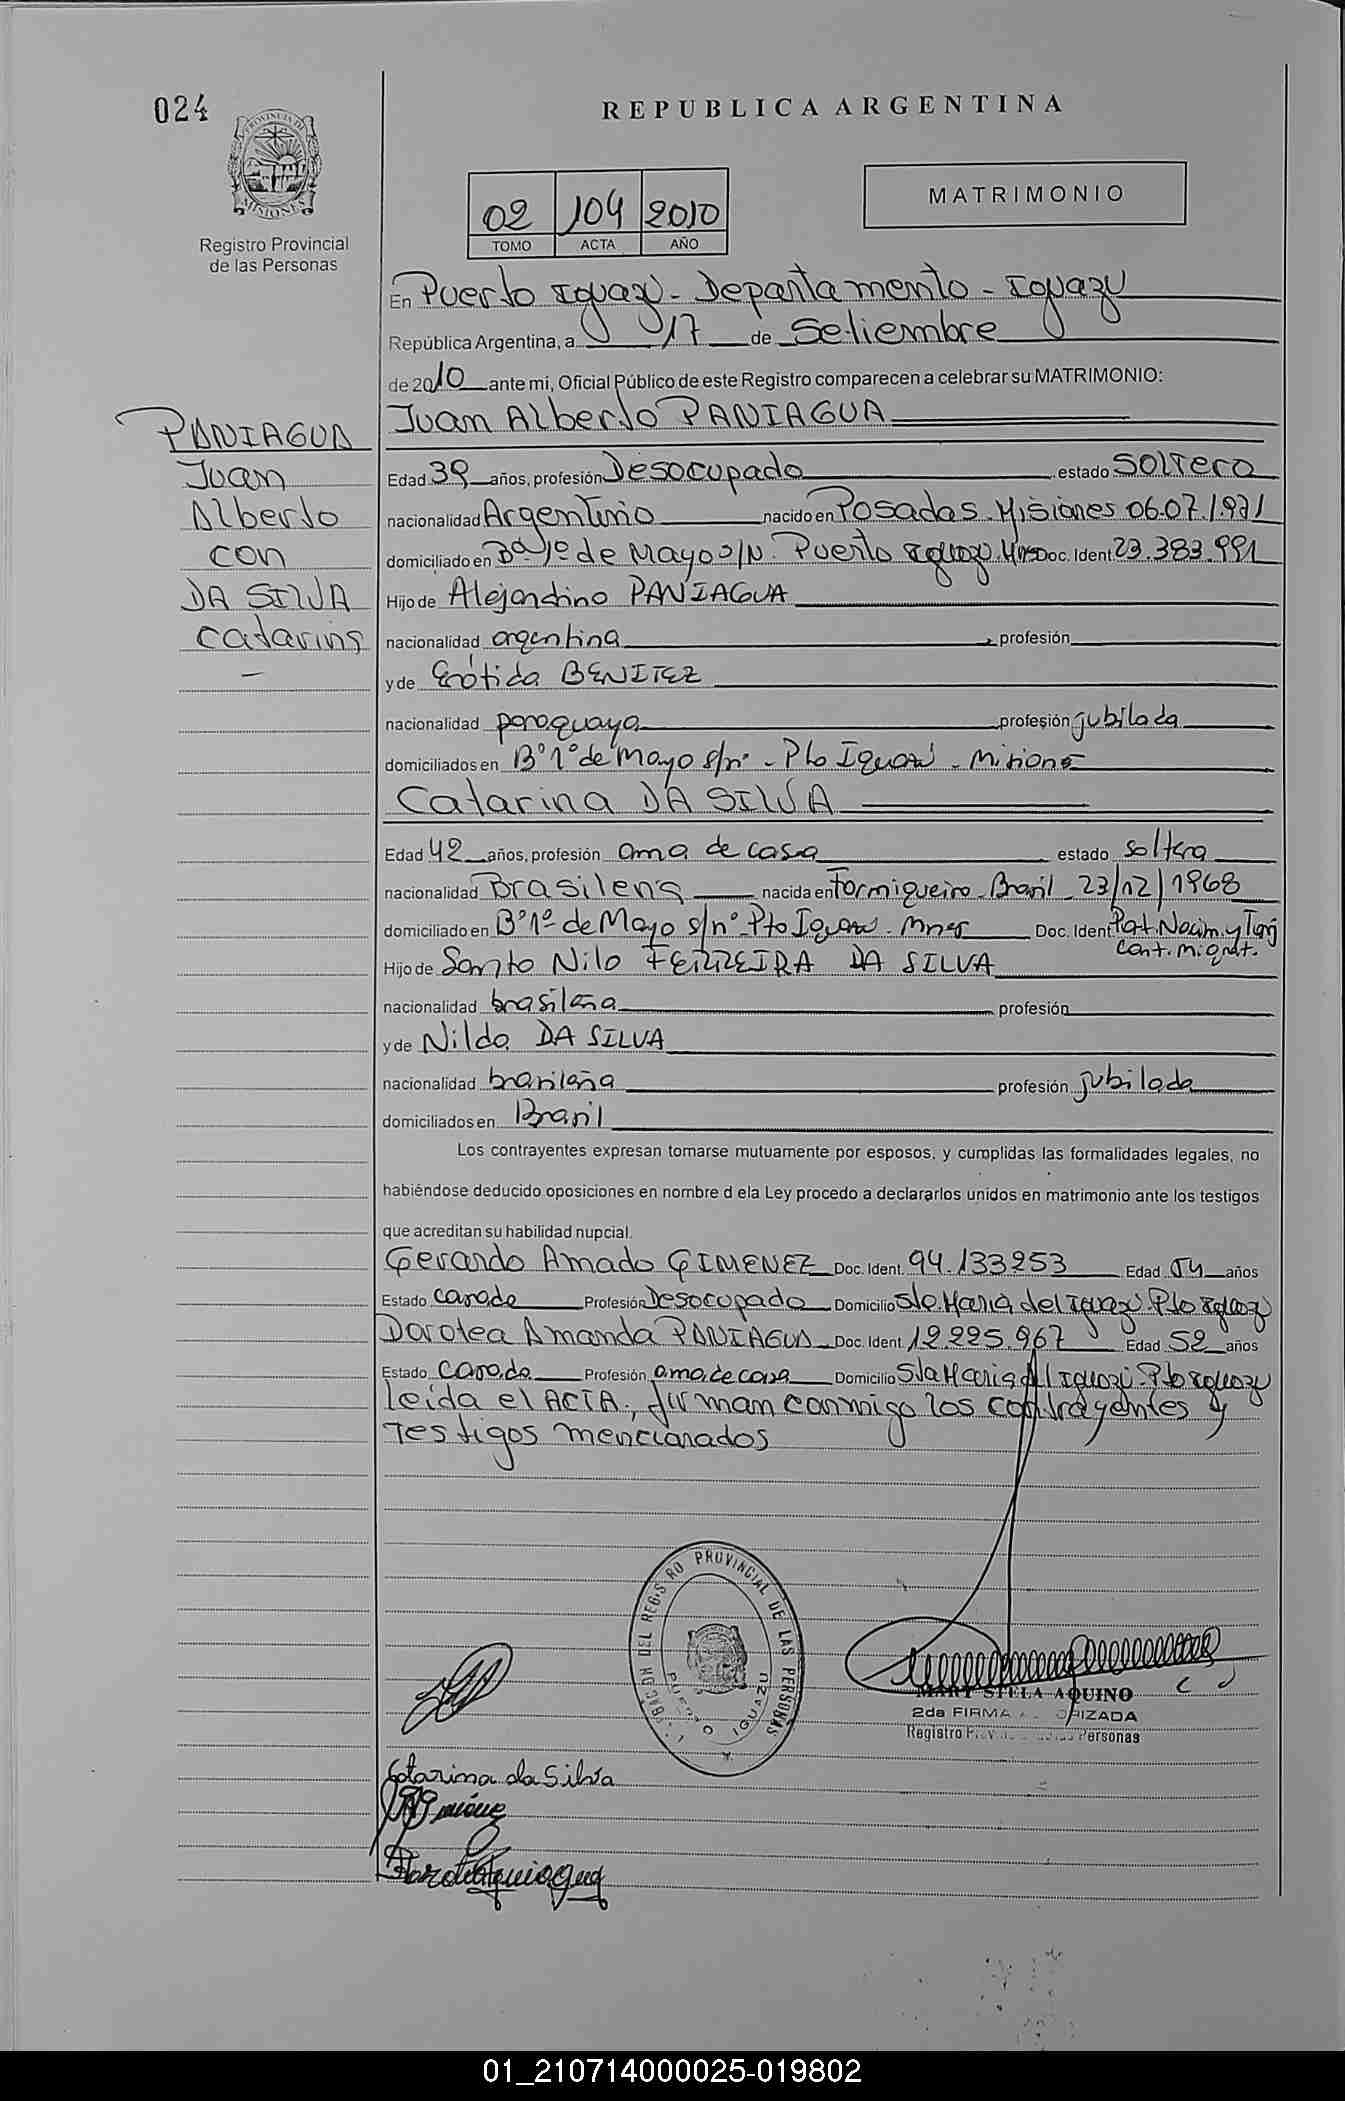 024
REPUBLICA ARGENTINA
PROVINCIA DE
MISIONES
Registro Provincial
de las Personas
02 104 2010
TOMO ACTA AÑO
MATRIMONIO
En Puerto Iguazu - Departamento - Iguazu
República Argentina, a 17 de Setiembre
de 2010 ante mi, Oficial Público de este Registro comparecen a celebrar su MATRIMONIO:
Juan Alberto PANIAGUA
PANIAGUA
Juan
Alberto
con
DA SILVA
Catarina
Edad 39 años, profesión Desocupado estado Soltero
nacionalidad Argentino nacido en Posadas. Misiones 06.07.1.971
domiciliado en Bº 1º de Mayo S/N. Puerto Iguazu. Mnes Doc. Ident. 23.383.991
Hijo de Alejandino PANIAGUA
nacionalidad argentina profesión
y de Erótida BENITEZ
nacionalidad paraguaya profesión jubilada
domiciliados en Bº 1º de Mayo s/nº - Pto Iguazú - Misiones
Catarina DA SILVA
Edad 42 años, profesión ama de casa estado soltera
nacionalidad Brasileña nacida en Formigueiro - Brasil - 23/12/1968
domiciliado en Bº 1º de Mayo s/nº - Pto Iguazu - Mnes Doc. Ident. Part. Nacim. y Tarj
Cont. Migrat.
Hijo de Santo Nilo FERREIRA DA SILVA
nacionalidad brasileña profesión
y de Nilda DA SILVA
nacionalidad brasileña profesión jubilada
domiciliados en Brasil
Los contrayentes expresan tomarse mutuamente por esposos, y cumplidas las formalidades legales, no
habiéndose deducido oposiciones en nombre d ela Ley procedo a declararlos unidos en matrimonio ante los testigos
que acreditan su habilidad nupcial.
Gerardo Amado GIMENEZ Doc. Ident. 94.133253 Edad 54 años
Estado casado Profesión Desocupado Domicilio Sta. Maria del Iguazu. Pto Iguazu
Dorotea Amanda PANIAGUA Doc. Ident. 12.225.967 Edad 52 años
Estado casada Profesión ama de casa Domicilio Sta Maria del Iguazu. Pto Iguazu
leida el ACTA, firman conmigo los contrayentes y
Testigos mencionados
DEL REGISTRO PROVINCIAL DE LAS PERSONAS
PUERTO IGUAZU
MARY STELA AQUINO
2da FIRMA
Registro Personas
Catarina da Silva
01_210714000025-019802